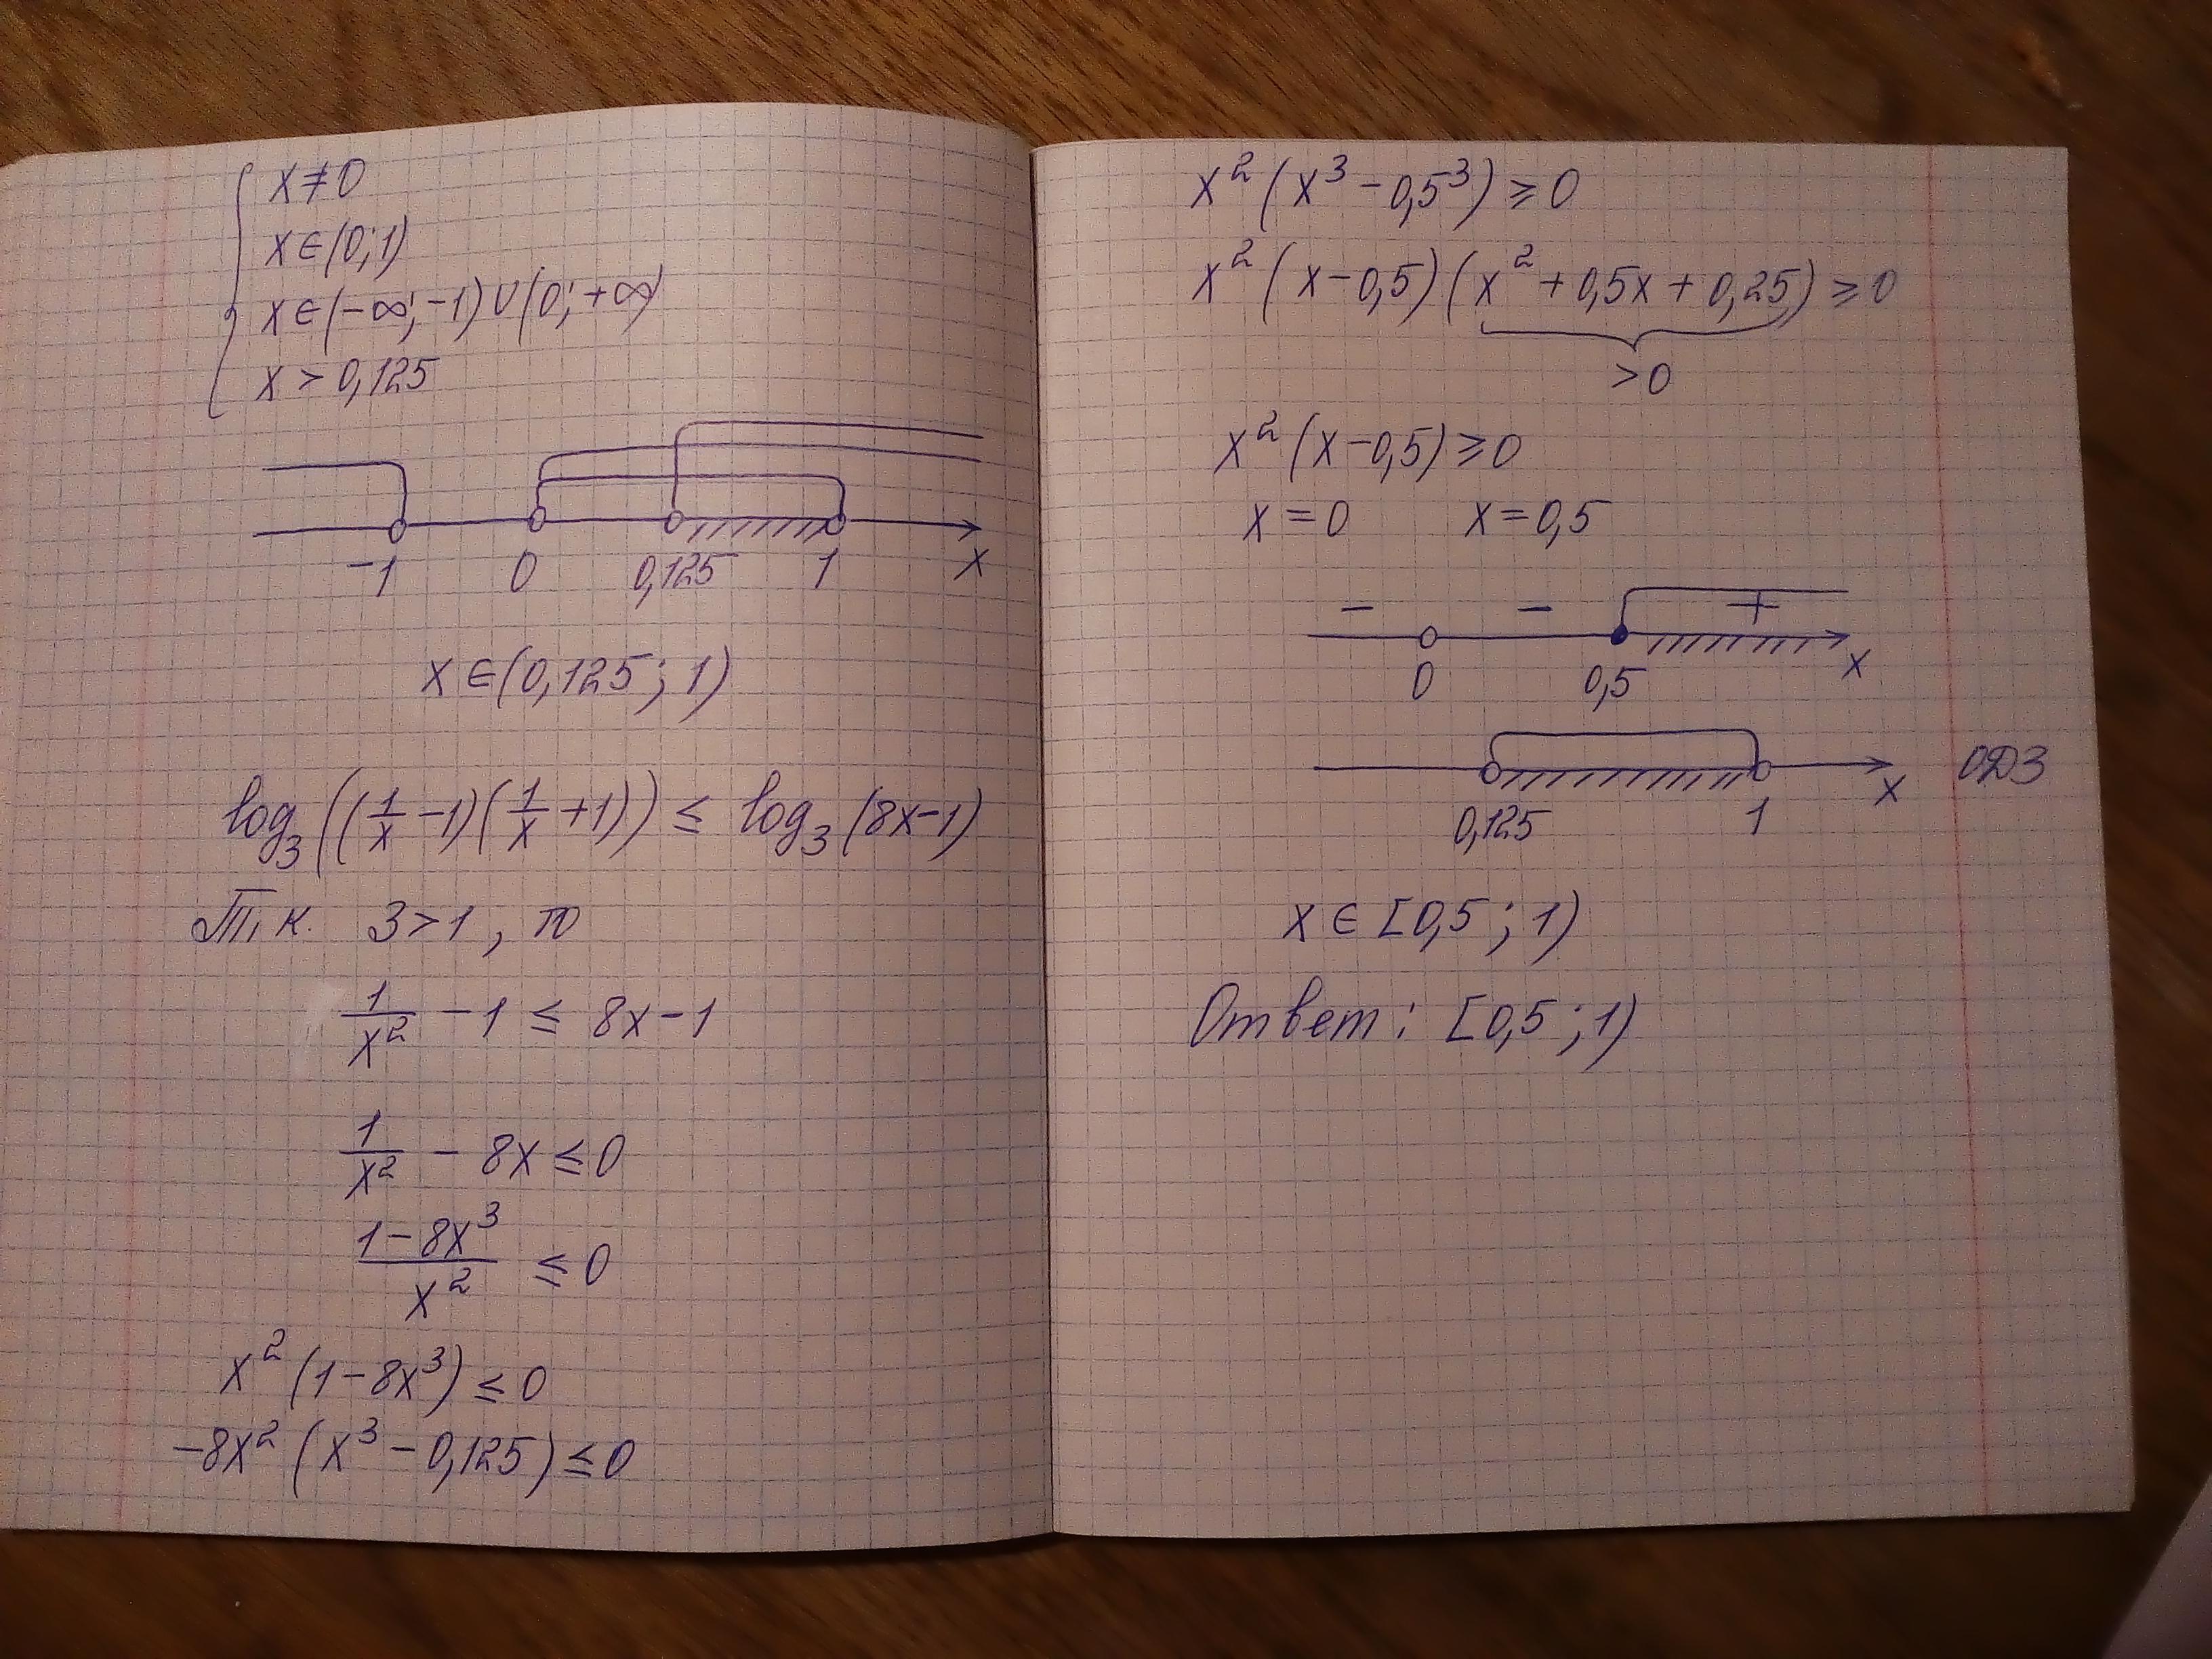 x ≠ 0
x ∈ (0; 1)
x ∈ (-∞; -1) ∪ (0; +∞)
x > 0,125
-1 0 0,125 1 x
x ∈ (0,125; 1)
log₃((1/x - 1)(1/x + 1)) ≤ log₃(8x-1)
Т.к. 3 > 1, то
1/x² - 1 ≤ 8x - 1
1/x² - 8x ≤ 0
(1 - 8x³)/x² ≤ 0
x²(1 - 8x³) ≤ 0
-8x²(x³ - 0,125) ≤ 0
x²(x³ - 0,5³) ≥ 0
x²(x - 0,5)(x² + 0,5x + 0,25) ≥ 0
> 0
x²(x - 0,5) ≥ 0
x = 0 x = 0,5
- - +
0 0,5 x
ОДЗ
0,125 1 x
x ∈ [0,5; 1)
Ответ: [0,5; 1)